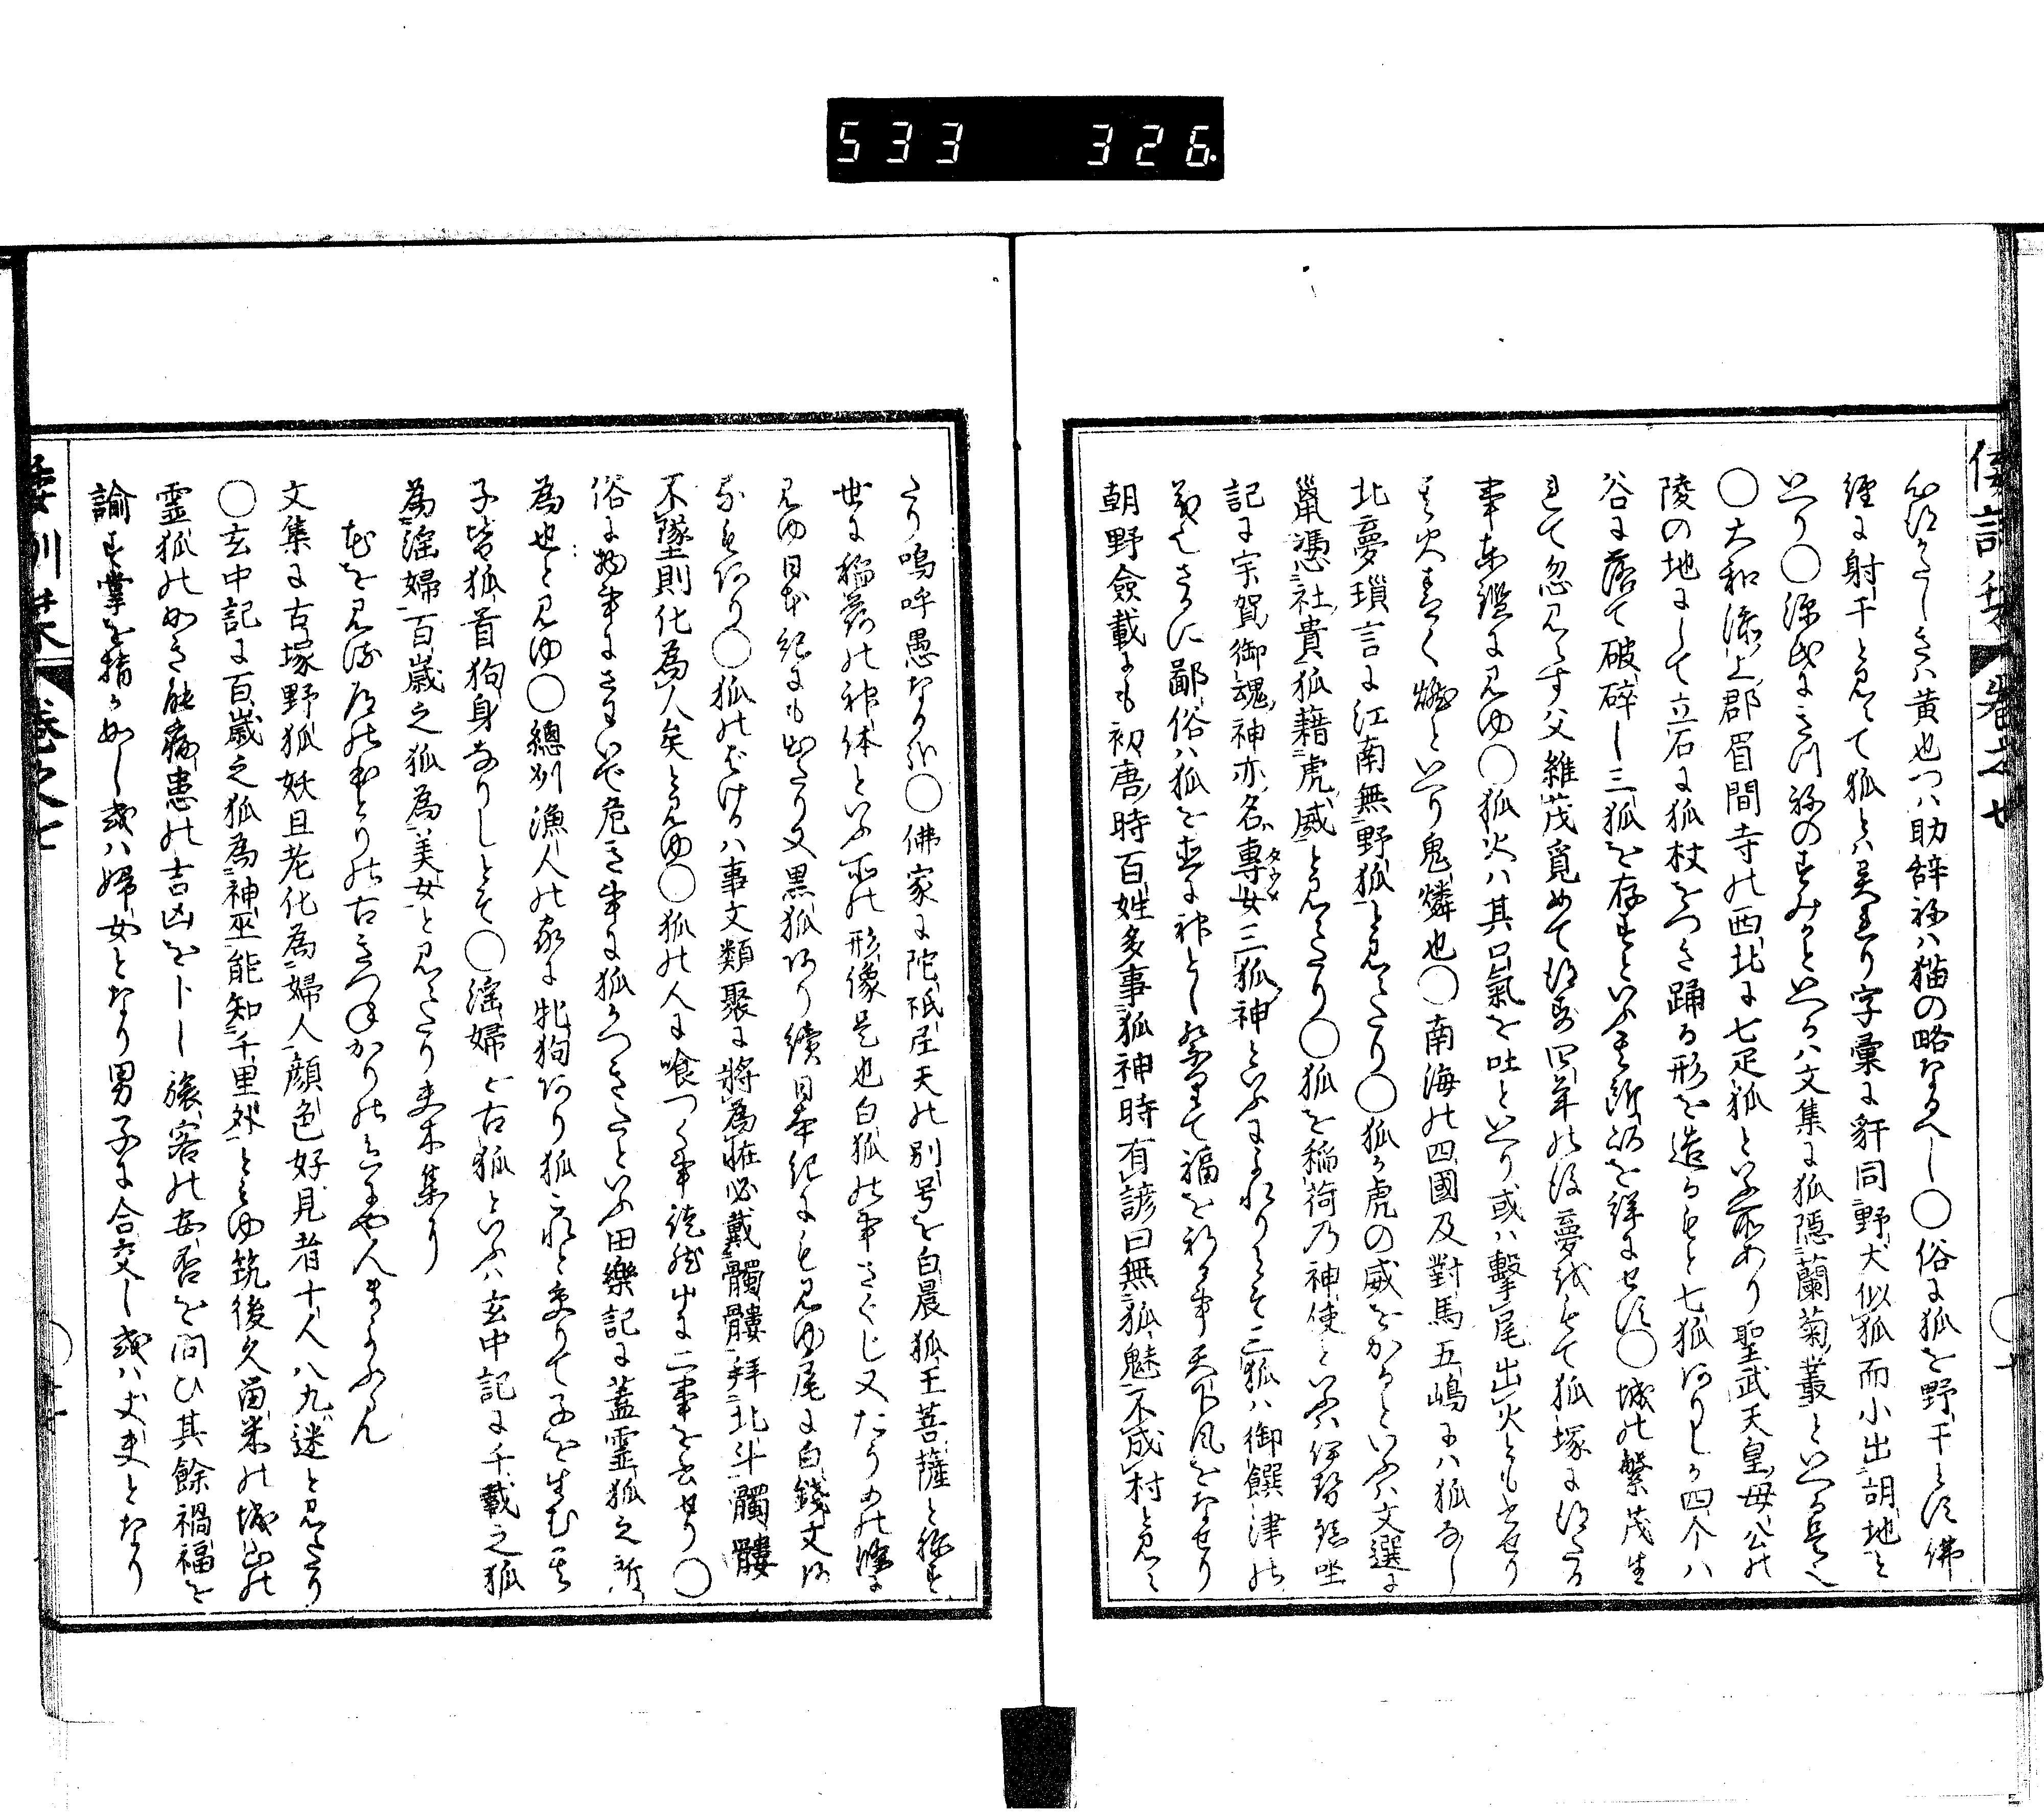 533 326
倭訓栞 巻之七
ハ黄也つハ助辞ねハ猫の略なるへし〇俗に狐を野干とす佛
経に射干と見えて狐とハ異れり字彙に豻同野犬似狐而小出胡地と
いへり〇源氏にきつねのすみかといへるハ文集に狐隠蘭菊叢といへる是也
〇大和添上郡眉間寺の西北に七疋狐といふ所あり聖武天皇母公の
陵の地にして立石に狐杖をつき踊る形を造るもと七狐ありしか四个ハ
谷に落て破碎し三狐を存すといふ其所以を詳にせす〇城の繁茂生
れて忽見えす父維茂覓めて得す四年の後夢によて狐塚に得たる
事東鑑に見ゆ〇狐火ハ其口氣を吐といへり或ハ撃尾出火とも云せり
其火青く燃といへり鬼燐也〇南海の四國及對馬五嶋にハ狐なし
北夢瑣言に江南無野狐と見えたり〇狐か虎の威をかるといふハ文選に
鼠憑社貴狐藉虎威と見えたり〇狐を稲荷乃神使といふハ伊勢
記に宗賀御魂神亦名專女タウメ三狐神といふによれりそ三狐ハ御饌津の
義也さるに鄙俗ハ狐を直に神とし祭りて福を祈る事天下風をなせり
朝野僉載にも初唐時百姓多事狐神時有諺曰無狐魅不成村と見え
たり嗚呼愚なる〇佛家に陀祇尼天の別号を白晨狐王菩薩と称す
世に稲荷の神体といふ所の形像是也白狐の事さくじ又たうめの條に
見ゆ日本紀にも出たり又黒狐あり續日本紀にも見ゆ尾に白錢文
なとあり〇狐のばけるハ事文類聚に將為怪必戴髑髏拜北斗髑髏
不墜則化為人矣と見ゆ〇狐の人に喰つく事に二事を云せり〇
俗に物事にさはいで危き事に狐かつきたといふ田樂記に蓋霊狐之所
為也と見ゆ〇總州漁人の家に牝狗あり狐これと交りて子を生む其
子皆狐首狗身なりしとそ〇淫婦と古狐といふハ玄中記に千載之狐
為淫婦百歳之狐為美女と見えたり夫木集に
花を見る道のほとりの古きつねかりの色にや人まよふらん
文集に古塚野狐妖且老化為婦人顔色好見者十人八九迷と見えたり
〇玄中記に百歳之狐為神巫能知千里外とも見ゆ筑後久留米の城山の
霊狐の如き能病患の吉凶を卜し旅客の安否を問ひ其餘禍福を
諭す掌を指か如し或ハ婦女となり男子に合交し或ハ丈夫となり
倭訓栞 巻之七